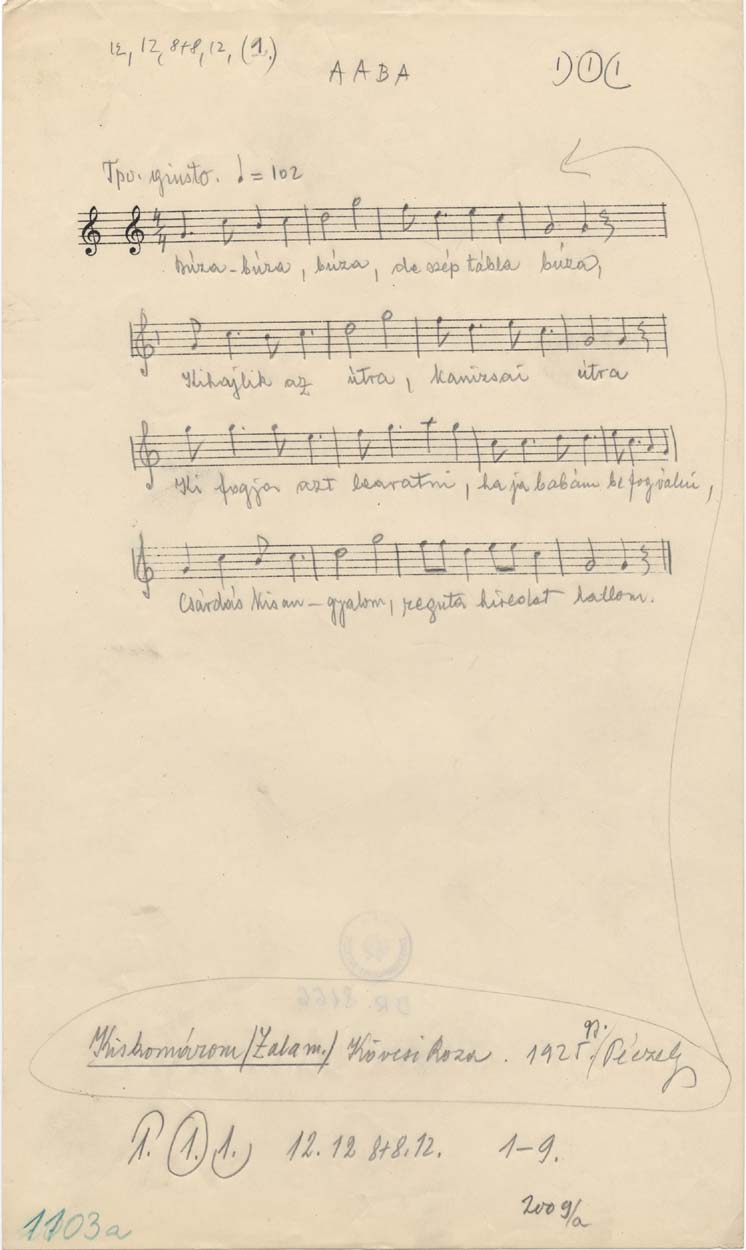 12, 12, 8+8, 12, (9.)
AABA
1) (1) (1
Tpo. giusto. ♩ = 102
4/4
Búza-búza, búza, de szép tábla búza,
Kihajlik az útra, kanizsai útra
Ki fogja azt learatni, ha ja babám be fog válni,
Csárdás kisan-gyalom, reguta híredet hallom.
BR. 8166
Kiskomárom/Zalam./ Kövesi Roza. 192 /Péczely
1. (1.) 1. 12. 12 8+8. 12. 1-9.
200 g/a
1103a